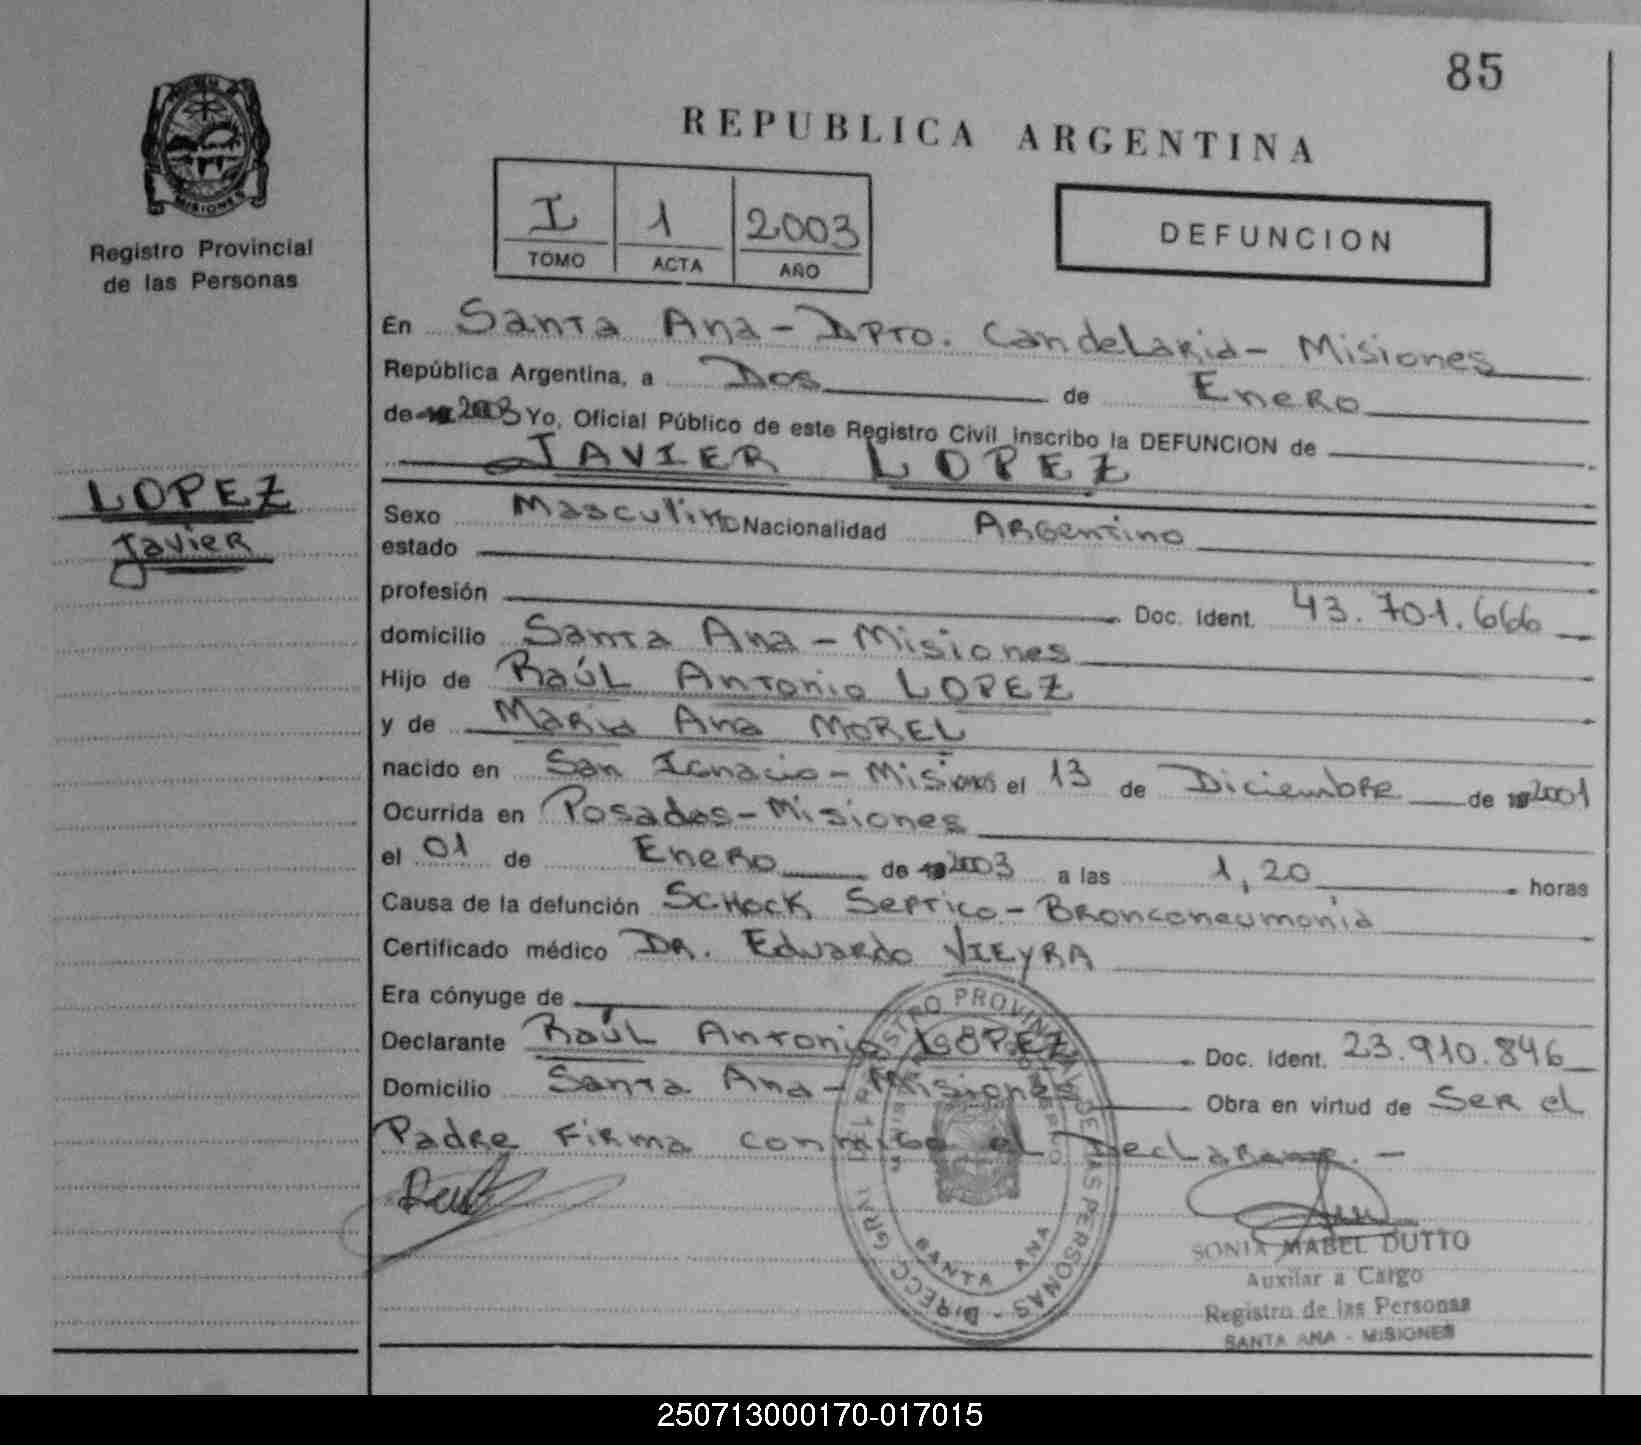 85
REPUBLICA ARGENTINA
MISIONES
Registro Provincial
de las Personas
I 1 2003
TOMO ACTA AÑO
DEFUNCION
En Santa Ana - Dpto. Candelaria - Misiones
República Argentina, a Dos de Enero
de 2003 Yo, Oficial Público de este Registro Civil inscribo la DEFUNCION de
JAVIER LOPEZ
LOPEZ
Javier
Sexo Masculino Nacionalidad Argentino
estado
profesión Doc. Ident. 43.701.666
domicilio Santa Ana - Misiones
Hijo de Raúl Antonio LOPEZ
y de Maria Ana MOREL
nacido en San Ignacio - Misiones el 13 de Diciembre de 2001
Ocurrida en Posadas - Misiones
el 01 de Enero de 2003 a las 1,20 horas
Causa de la defunción Schock Septico - Bronconeumonia
Certificado médico DR. Eduardo VIEYRA
Era cónyuge de
Declarante Raúl Antonio LOPEZ Doc. Ident. 23.910.846
Domicilio Santa Ana - Misiones Obra en virtud de Ser el
Padre Firma conmigo el Declarante. -
DIRECC. GRAL. REGISTRO PROVINCIAL DE LAS PERSONAS
SANTA ANA
SONIA MABEL DUTTO
Auxiliar a Cargo
Registro de las Personas
SANTA ANA - MISIONES
250713000170-017015